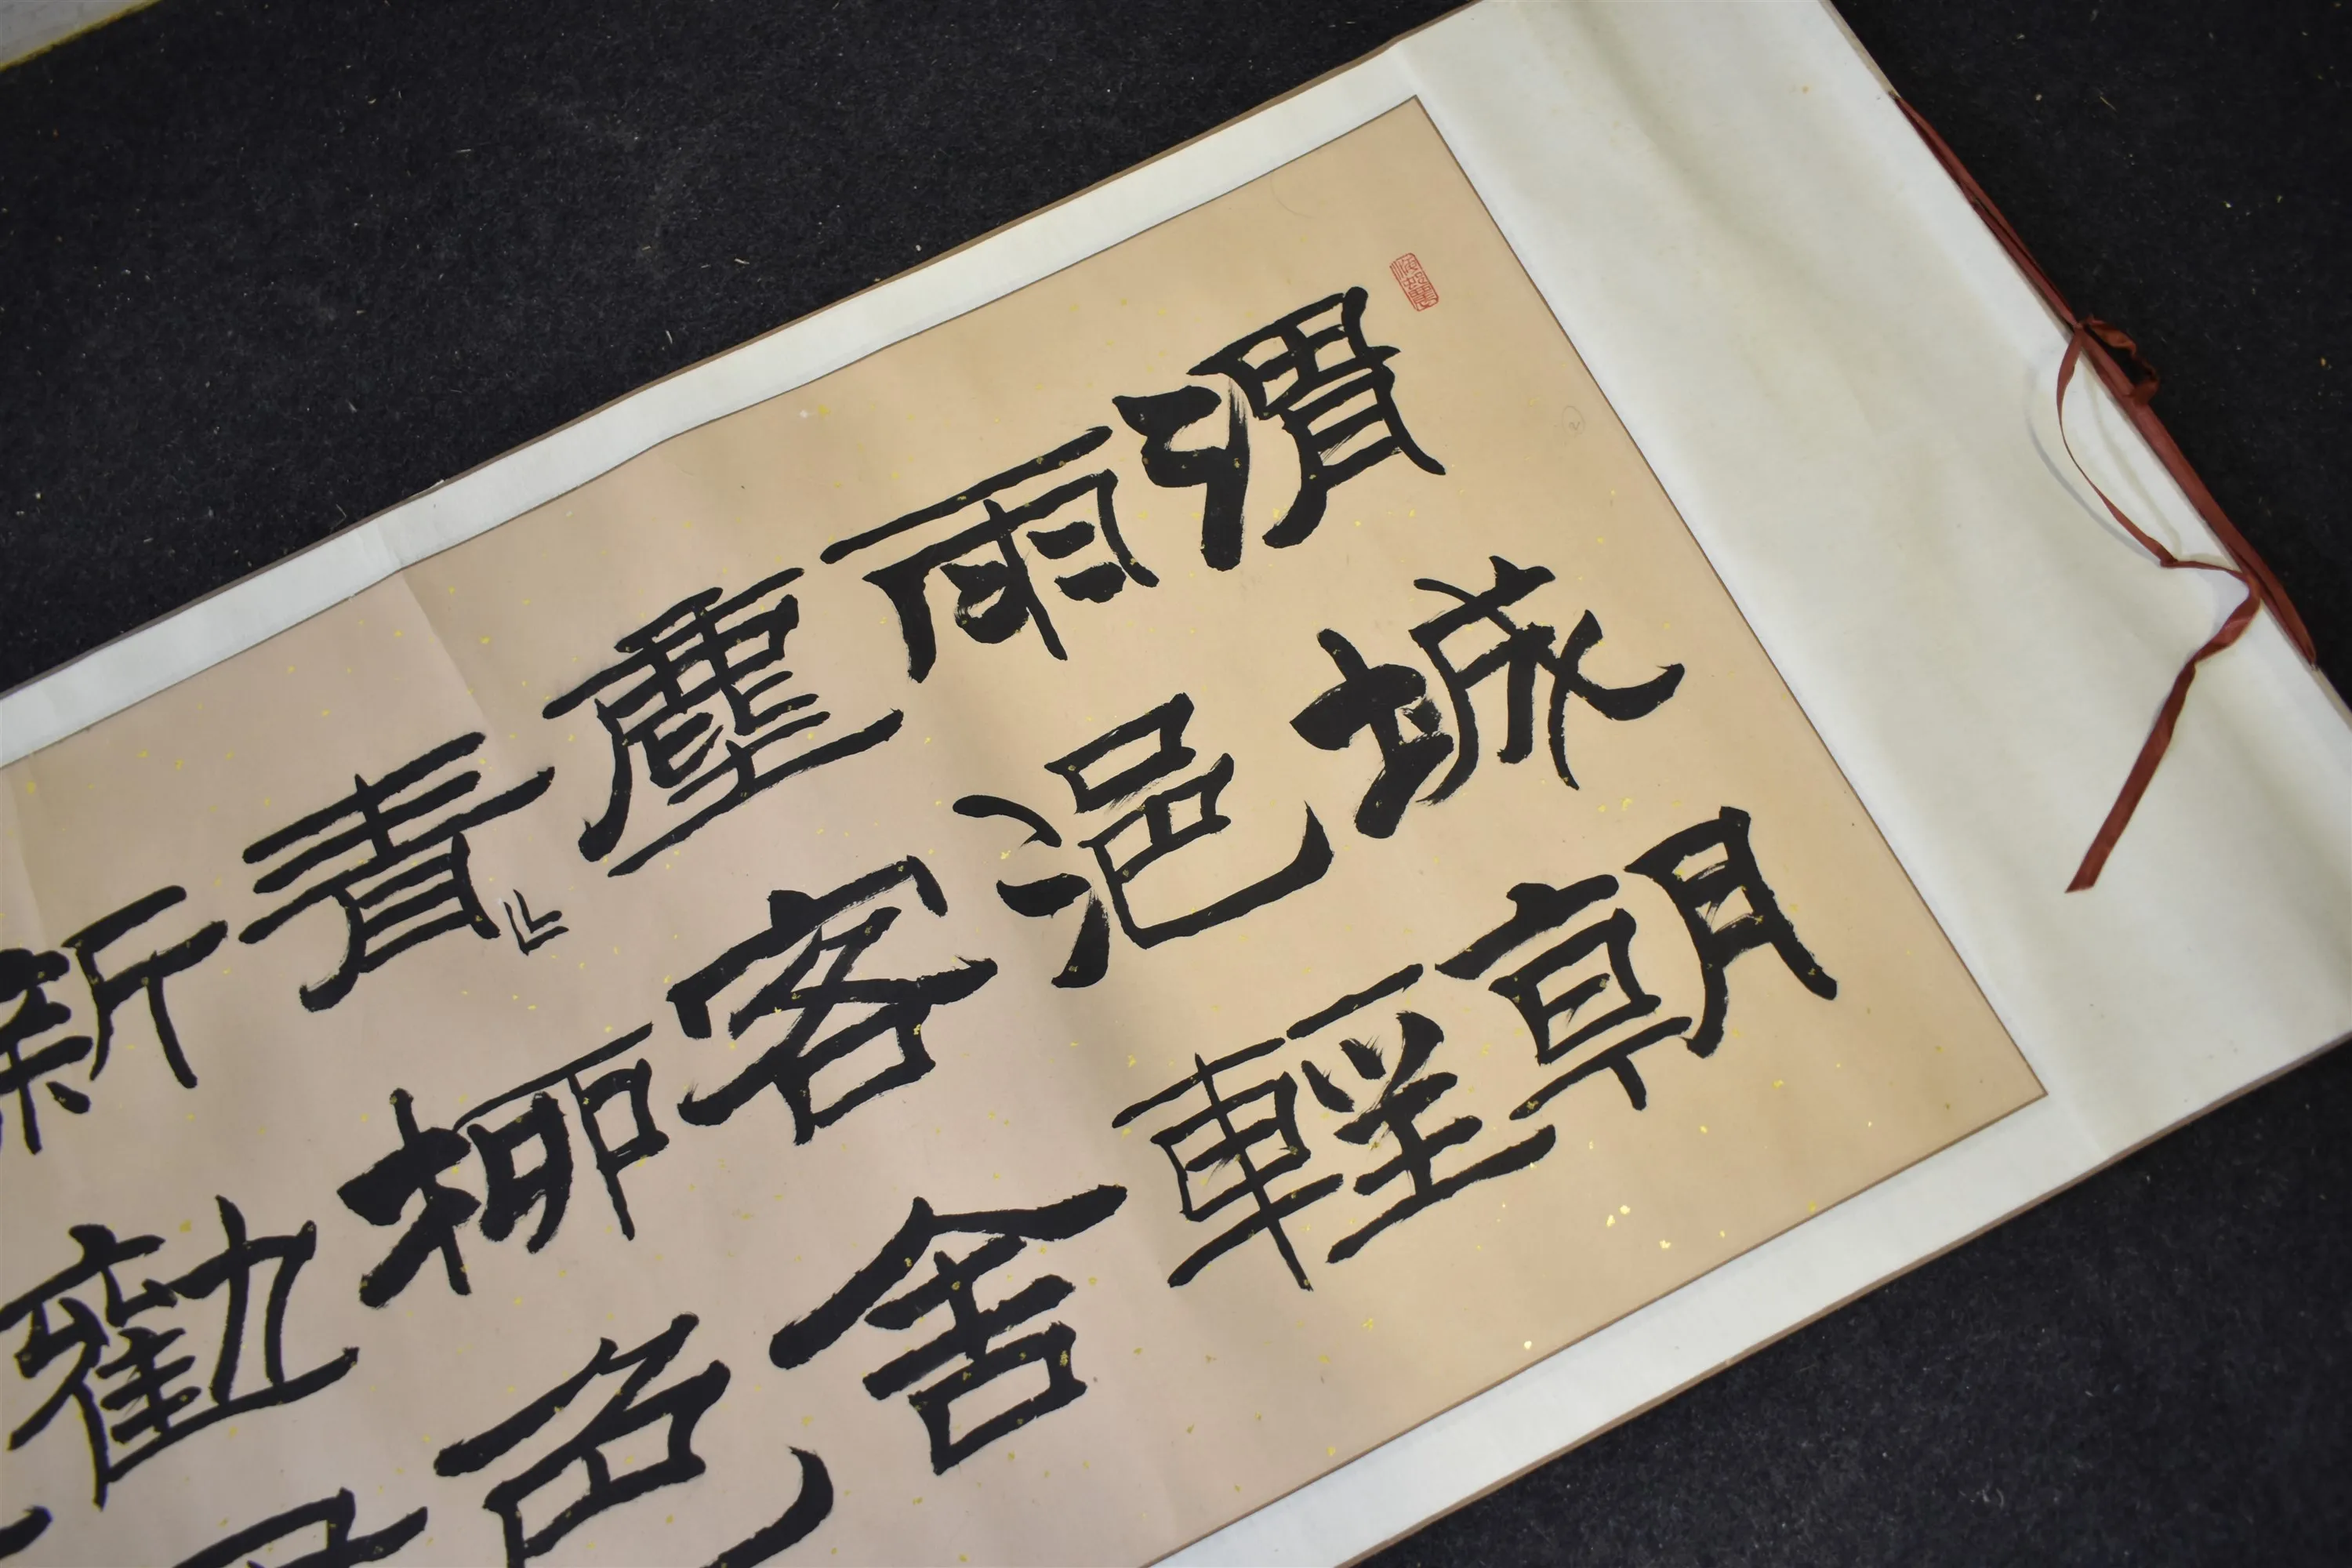 渭城朝
雨浥輕
塵客舍
青〻柳色
新勸